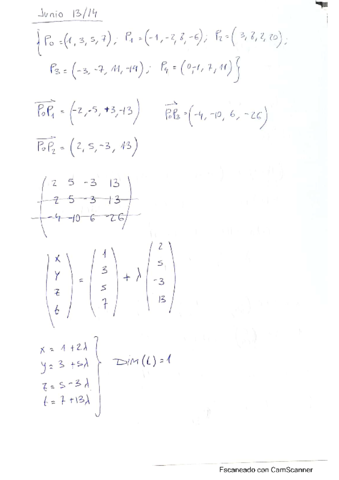 Junio 13/14
{P₀=(1, 3, 5, 7); P₁=(-1, -2, 8, -6); P₂=(3, 8, 2, 20);
P₃=(-3, -7, 11, -19); P₄=(0, -1, 7, 11)}
P₀P₁ = (-2, -5, +3, -13) P₀P₃ = (-4, -10, 6, -26)
P₀P₂ = (2, 5, -3, 13)
2 5 -3 13
2 5 -3 13
-4 -10 6 -26
(x y z t) = (1 3 5 7) + λ (2 5 -3 13)
x = 1 + 2λ
y = 3 + 5λ
z = 5 - 3λ
t = 7 + 13λ
DIM(L) = 1
Escaneado con CamScanner